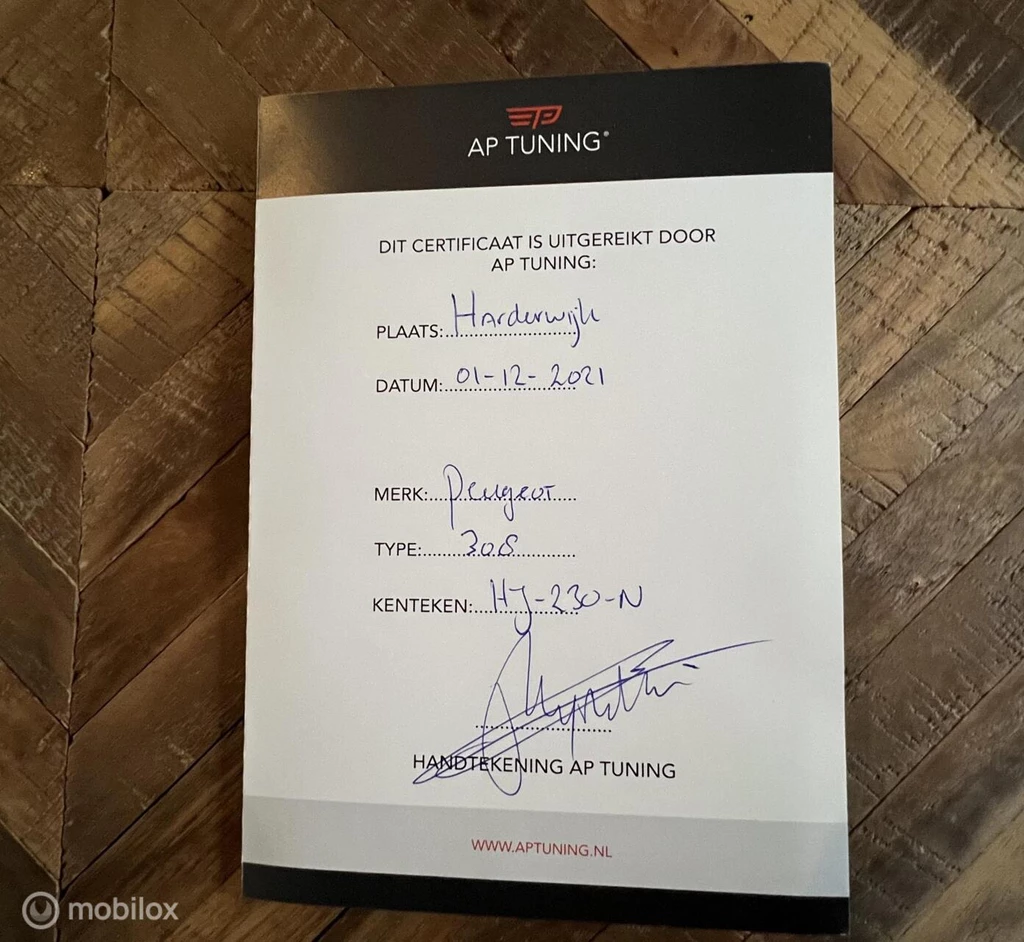 AP TUNING®
DIT CERTIFICAAT IS UITGEREIKT DOOR
AP TUNING:
PLAATS: Harderwijk
DATUM: 01-12-2021
MERK: Peugeot
TYPE: 308
KENTEKEN: HJ-230-N
HANDTEKENING AP TUNING
WWW.APTUNING.NL
mobilox